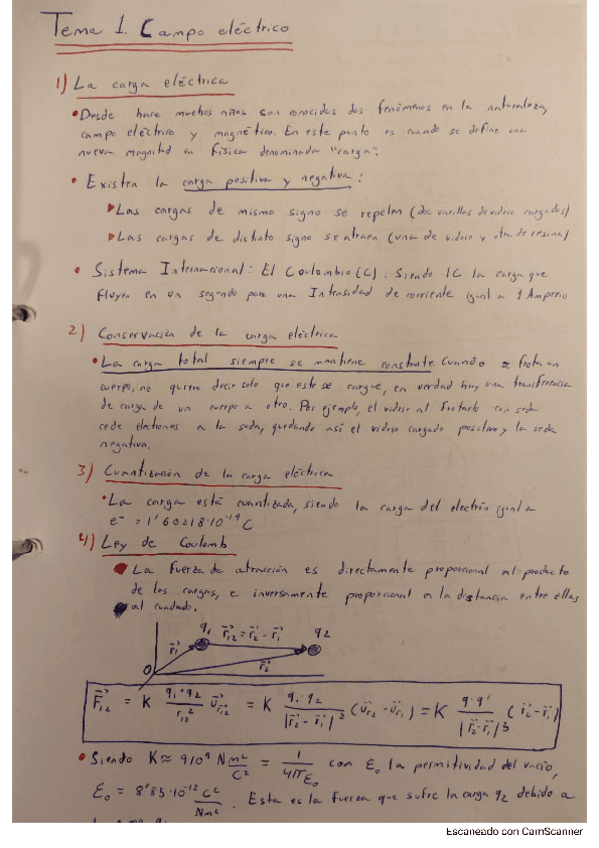 Tema 1. Campo eléctrico
1) La carga eléctrica
• Desde hace muchos años son conocidos dos fenómenos en la naturaleza,
campo eléctrico y magnético. En este punto es cuando se define una
nueva magnitud en física denominada "carga".
• Existen la carga positiva y negativa:
▶ Las cargas de mismo signo se repelen (dos varillas de vidrio cargadas)
▶ Las cargas de distinto signo se atraen (una de vidrio y otra de resina)
• Sistema Internacional: El Coulombio (C). Siendo 1C la carga que
fluye en un segundo para una Intensidad de corriente igual a 1 Amperio
2) Conservación de la carga eléctrica
• La carga total siempre se mantiene constante cuando se frota un
cuerpo, no quiere decir solo que este se cargue, en verdad hay una transferencia
de carga de un cuerpo a otro. Por ejemplo, el vidrio al frotarlo con seda
cede electrones a la seda, quedando así el vidrio cargado positivo y la seda
negativa.
3) Cuantización de la carga eléctrica
• La carga está cuantizada, siendo la carga del electrón igual a
e⁻ = 1'60218·10⁻¹⁹ C
4) Ley de Coulomb
• La fuerza de atracción es directamente proporcional al producto
de las cargas, e inversamente proporcional a la distancia entre ellas
al cuadrado.
q₁ r⃗₁₂ = r⃗₂ - r⃗₁ q₂
r⃗₁ r⃗₂
O
F⃗₁₂ = K q₁·q₂/r₁₂² u⃗r₁₂ = K q₁·q₂/|r⃗₂ - r⃗₁|² (u⃗r₂ - u⃗r₁) = K q·q'/|r⃗₂·r⃗₁|³ (r⃗₂ - r⃗₁)
• Siendo K ≈ 9·10⁹ Nm²/C² = 1/4πε₀ con ε₀ la permitividad del vacío,
ε₀ = 8'85·10⁻¹² C²/Nm². Esta es la fuerza que sufre la carga q₂ debido a
Escaneado con CamScanner